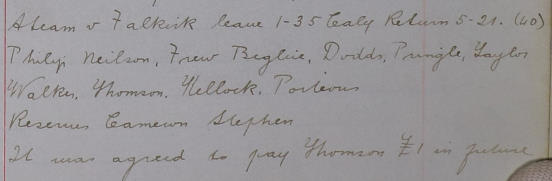 A team v Falkirk leave 1-35 Caly Return 5-21. (40)
Philip Neilson, Frew Beglie, Dodds, Pringle, Taylor
Walker, Thomson, Kellock, Porteous
Reserves Cameron Stephen
It was agreed to pay Thomson £1 in future